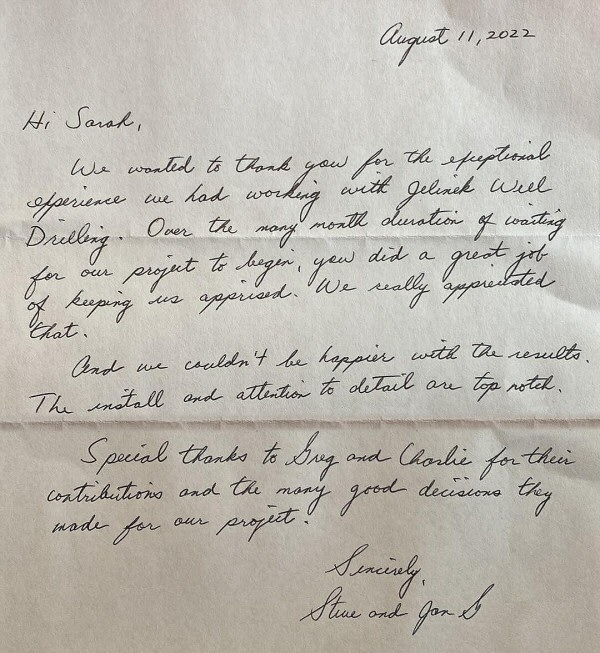 August 11, 2022
Hi Sarah,
We wanted to thank you for the exceptional
experience we had working with Jelinek Well
Drilling. Over the many month duration of waiting
for our project to begin, you did a great job
of keeping us apprised. We really appreciated
that.
And we couldn't be happier with the results.
The install and attention to detail are top notch.
Special thanks to Greg and Charlie for their
contributions and the many good decisions they
made for our project.
Sincerely,
Steve and Jan S